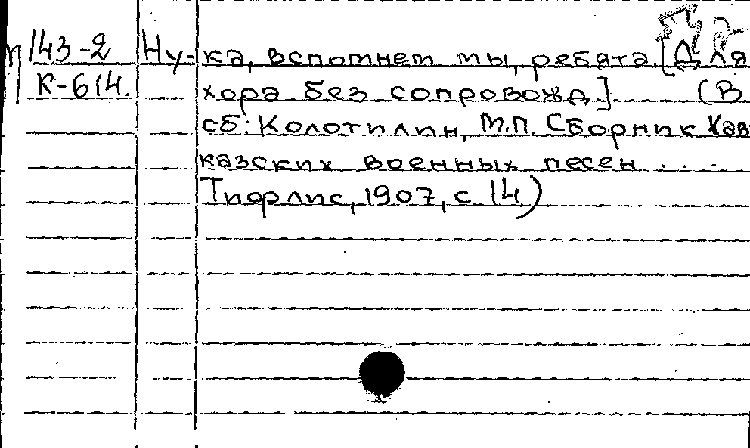 П 143-2 Ну-ка, вспомнем мы, ребята [Для
К-614. хора без сопровожд.] (В
сб: Колотилин, М.П. Сборник Кав
казских военных песен ...
Тифлис, 1907, с. 14)